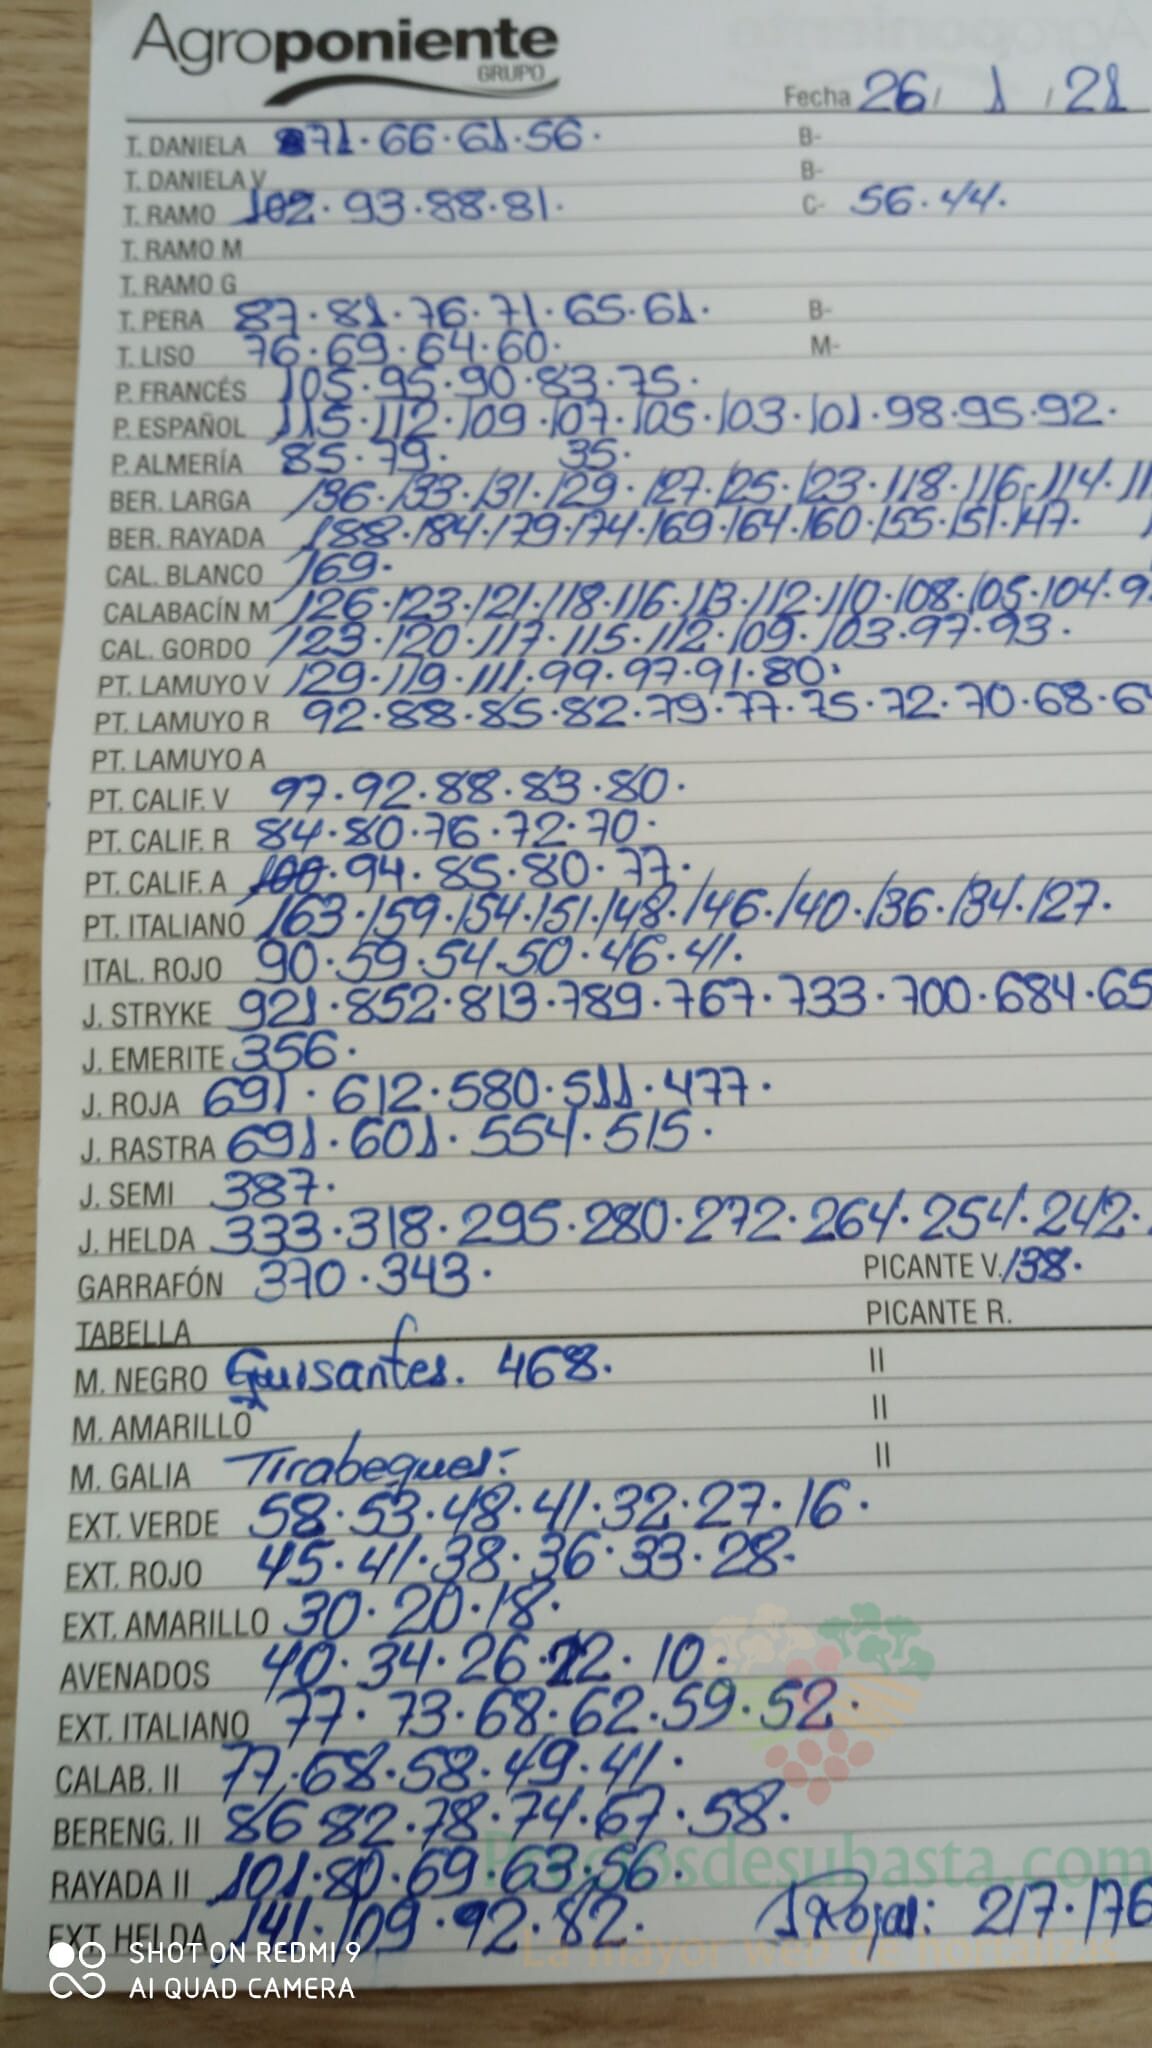 Agroponiente
GRUPO
Fecha 26 / 1 / 21
T. DANIELA 71. 66. 61. 56. B-
T. DANIELA V B-
T. RAMO 102. 93. 88. 81. C- 56. 44.
T. RAMO M
T. RAMO G
T. PERA 87. 81. 76. 71. 65. 61. B-
T. LISO 76. 69. 64. 60. M-
P. FRANCÉS 105. 95. 90. 83. 75.
P. ESPAÑOL 115. 112. 109. 107. 105. 103. 101. 98. 95. 92.
P. ALMERÍA 85. 79. 35.
BER. LARGA 136. 133. 131. 129. 127. 125. 123. 118. 116. 114.
BER. RAYADA 188. 184. 179. 174. 169. 164. 160. 155. 151. 147.
CAL. BLANCO 169.
CALABACÍN M 126. 123. 121. 118. 116. 113. 112. 110. 108. 105. 104.
CAL. GORDO 123. 120. 117. 115. 112. 109. 103. 97. 93.
PT. LAMUYO V 129. 119. 111. 99. 97. 91. 80.
PT. LAMUYO R 92. 88. 85. 82. 79. 77. 75. 72. 70. 68.
PT. LAMUYO A
PT. CALIF. V 97. 92. 88. 83. 80.
PT. CALIF. R 84. 80. 76. 72. 70.
PT. CALIF. A 100. 94. 85. 80. 77.
PT. ITALIANO 163. 159. 154. 151. 148. 146. 140. 136. 134. 127.
ITAL. ROJO 90. 59. 54. 50. 46. 41.
J. STRYKE 921. 852. 813. 789. 767. 733. 700. 684. 65
J. EMERITE 356.
J. ROJA 691. 612. 580. 511. 477.
J. RASTRA 691. 601. 554. 515.
J. SEMI 387.
J. HELDA 333. 318. 295. 280. 272. 264. 254. 242.
GARRAFÓN 370. 343. PICANTE V. 138.
TABELLA PICANTE R.
M. NEGRO Guisantes. 468. II
M. AMARILLO II
M. GALIA Tirabeques: II
EXT. VERDE 58. 53. 48. 41. 32. 27. 16.
EXT. ROJO 45. 41. 38. 36. 33. 28.
EXT. AMARILLO 30. 20. 18.
AVENADOS 40. 34. 26. 22. 10.
EXT. ITALIANO 77. 73. 68. 62. 59. 52.
CALAB. II 77. 68. 58. 49. 41.
BERENG. II 86 82. 78. 74. 67. 58.
Preciosdesubasta.com
RAYADA II 101. 80. 69. 63. 56.
EXT. HELDA 141. 109. 92. 82. Rojas: 217. 176
La mayor web de hortalizas
SHOT ON REDMI 9
AI QUAD CAMERA